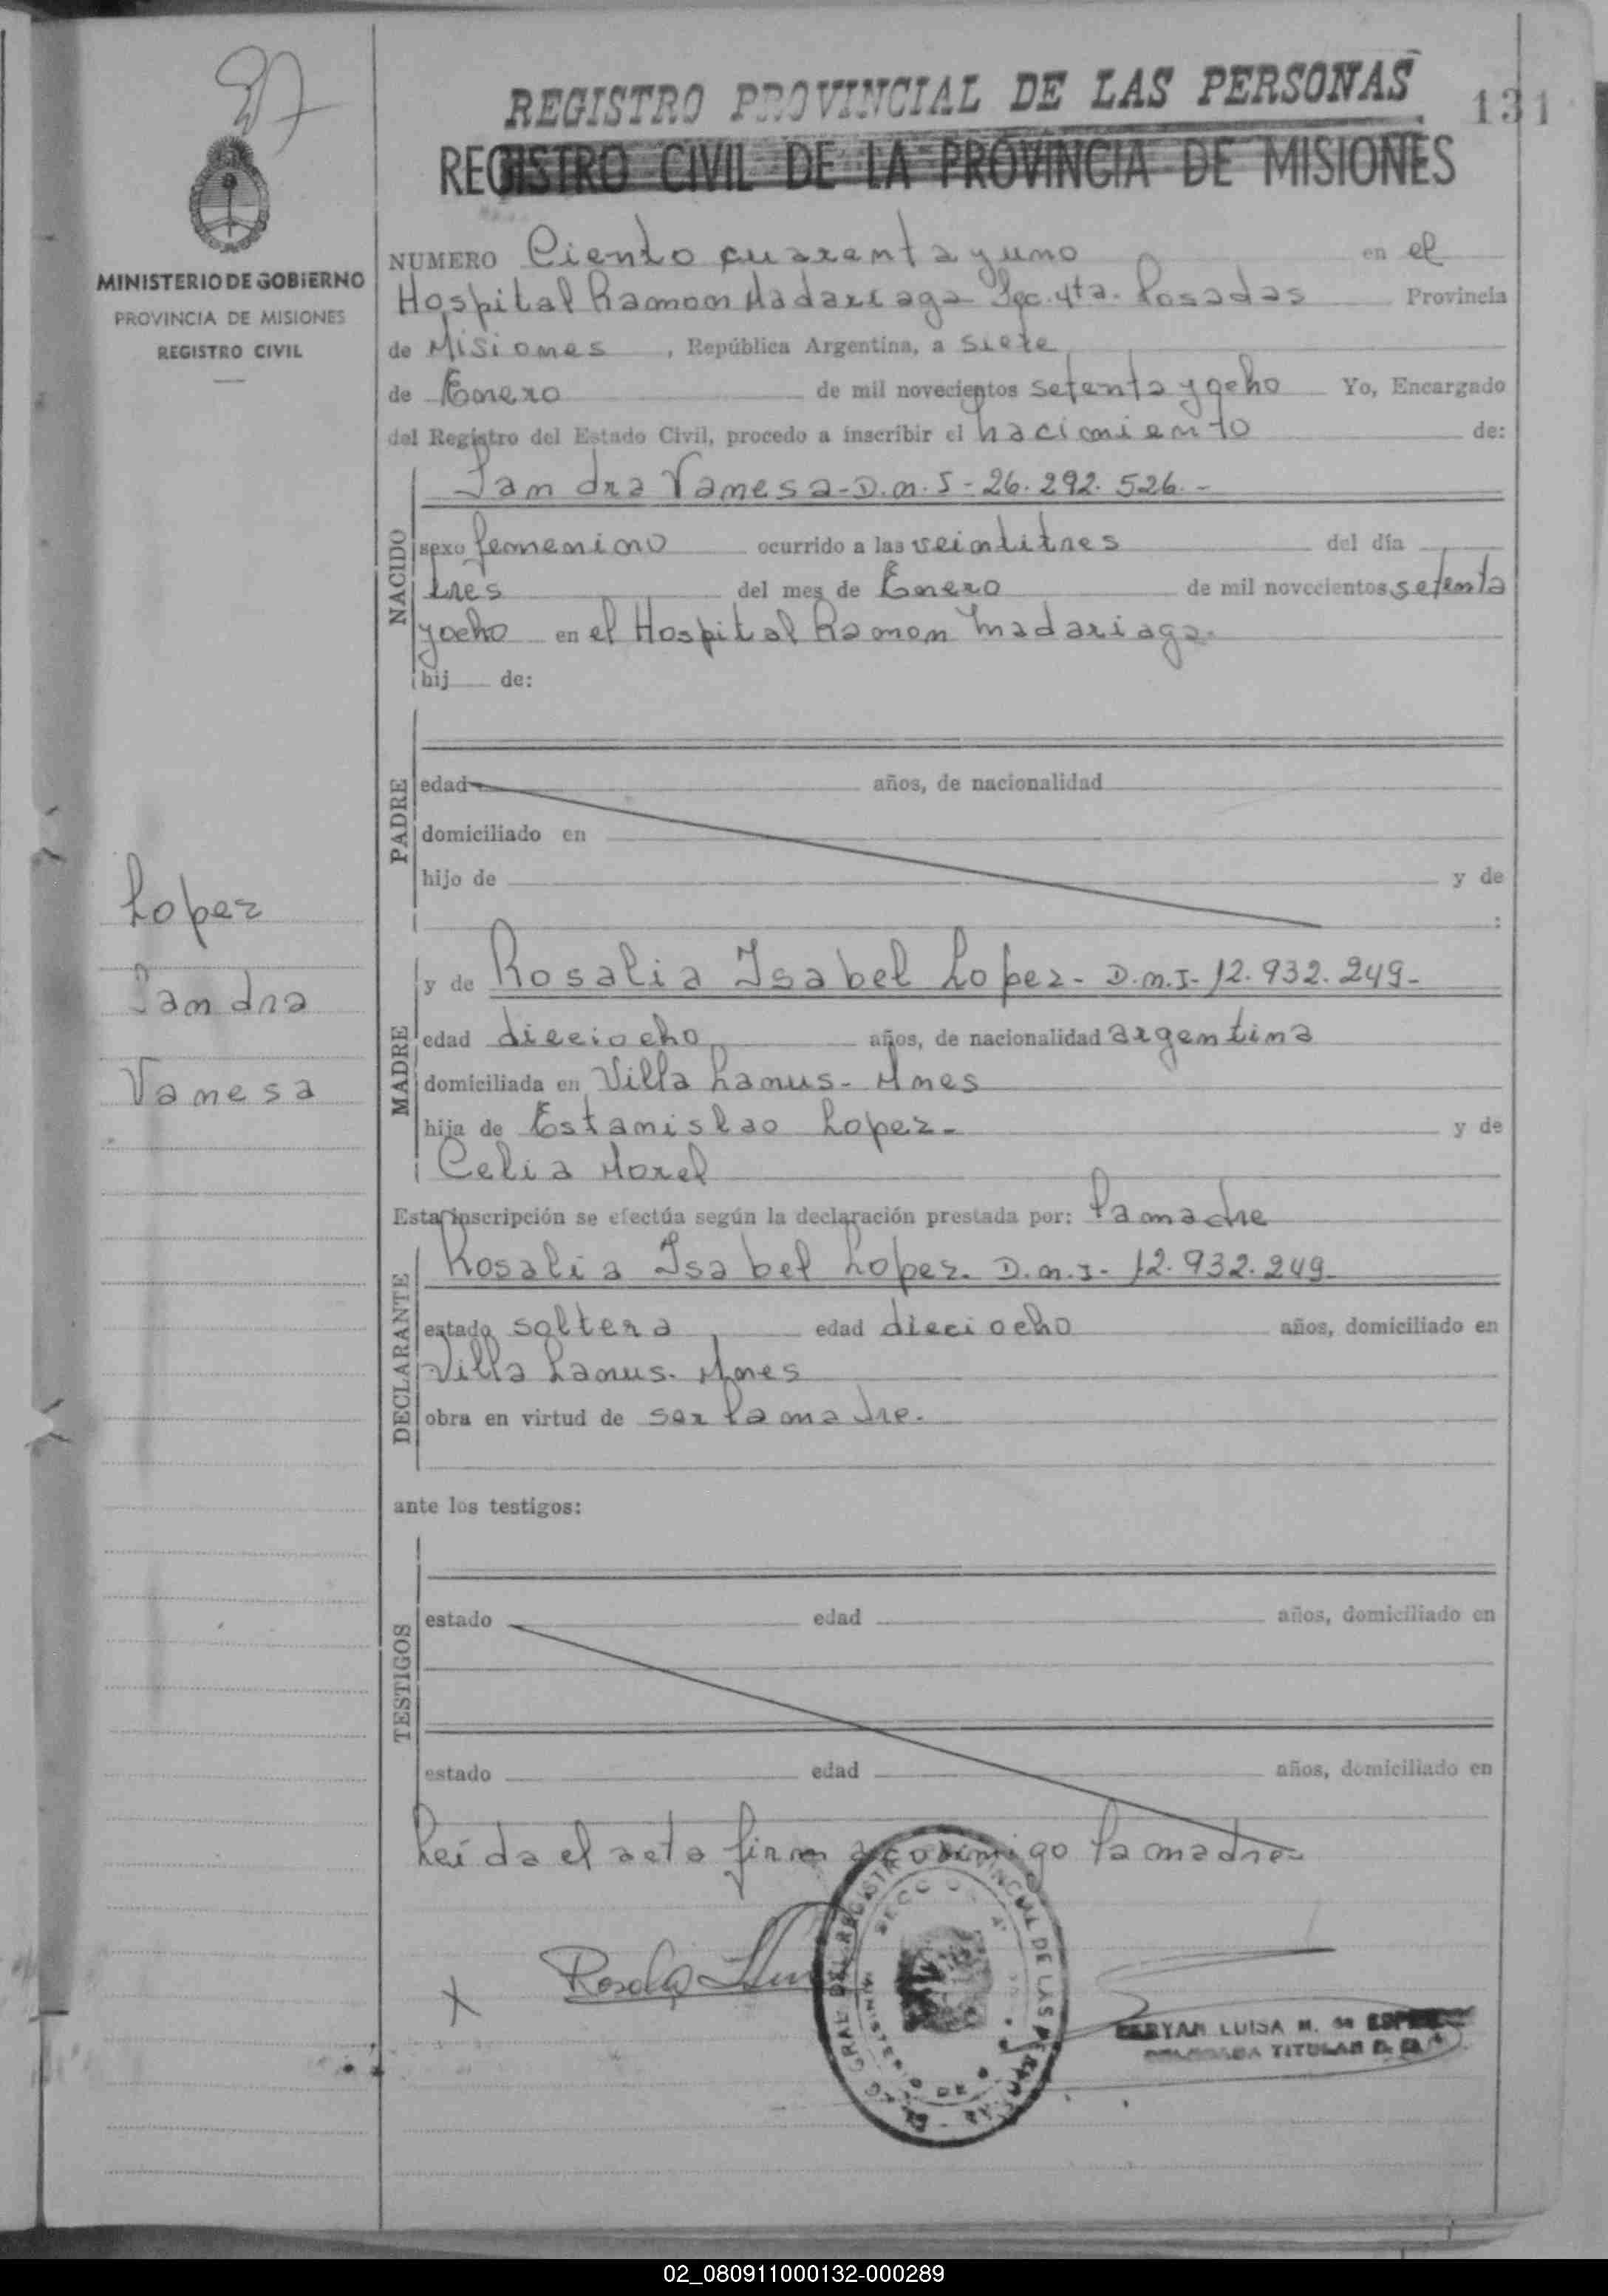 REGISTRO PROVINCIAL DE LAS PERSONAS
131
REGISTRO CIVIL DE LA PROVINCIA DE MISIONES
MINISTERIO DE GOBIERNO
PROVINCIA DE MISIONES
REGISTRO CIVIL
NUMERO Ciento cuarenta y uno en el
Hospital Ramon Madariaga Sec. 4ta. Posadas Provincia
de Misiones, República Argentina, a siete
de Enero de mil novecientos setenta y ocho Yo, Encargado
del Registro del Estado Civil, procedo a inscribir el nacimiento de:
NACIDO
Sandra Vanesa - D.n.I - 26.292.526.-
sexo femenino ocurrido a las veintitres del día
tres del mes de Enero de mil novecientos setenta
y ocho en el Hospital Ramon Madariaga.
hij de:
PADRE
edad años, de nacionalidad
domiciliado en
hijo de y de
:
Lopez
Sandra
Vanesa
MADRE
y de Rosalia Isabel Lopez - D.n.I - 12.932.249-
edad dieciocho años, de nacionalidad argentina
domiciliada en Villa Lanus - Mnes
hija de Estanislao Lopez - y de
Celia Morel
Esta inscripción se efectúa según la declaración prestada por: la madre
DECLARANTE
Rosalia Isabel Lopez. D.n.I - 12.932.249-
estado soltera, edad dieciocho años, domiciliado en
Villa Lanus. Mnes
obra en virtud de ser la madre.
ante los testigos:
TESTIGOS
estado edad años, domiciliado en
estado edad años, domiciliado en
Leída el acta firma conmigo la madre-
x
GRAL DEL REGISTRO PROVINCIAL DE LAS PERSONAS
LUISA M. de
TITULAR
02_080911000132-000289